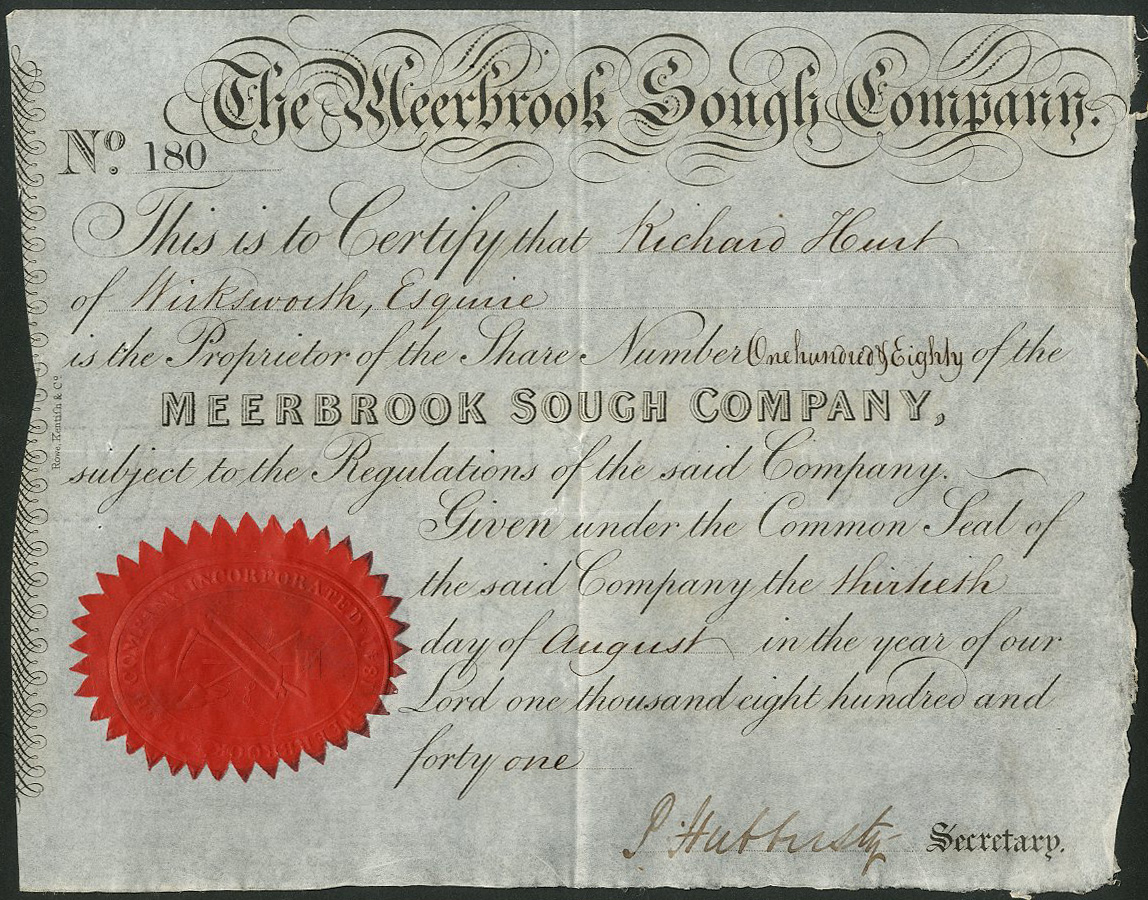 The Meerbrook Sough Company.
No. 180
This is to Certify that Richard Hurt
of Wirksworth, Esquire
is the Proprietor of the Share Number One hundred & Eighty of the
MEERBROOK SOUGH COMPANY,
subject to the Regulations of the said Company.
Given under the Common Seal of
the said Company the thirtieth
day of August in the year of our
Lord one thousand eight hundred and
forty one
Hubbersty Secretary.
Rowe, Kentish & Co
COMPANY INCORPORATED
MEERBROOK